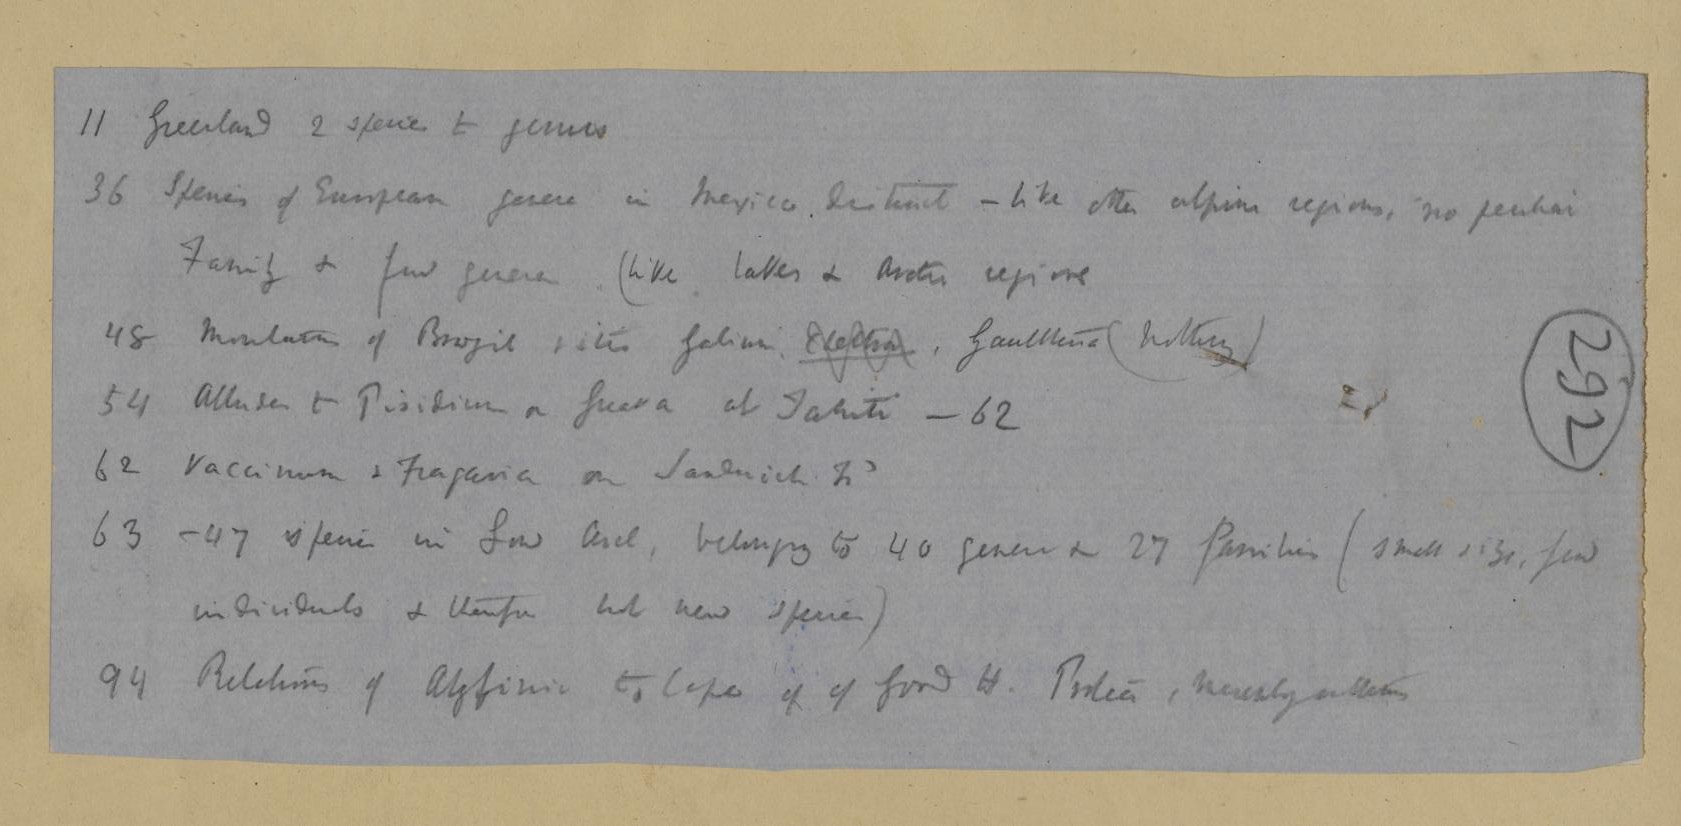 11 Greenland 2 species to genus
36 Species of European genera in Mexico District – like other alpine regions, no peculiar
Family & few genera (like lakes & Arctic regions
48 Mountains of Brazil Galium, Gaultheria (nothing)
54 Alludes to Psidium or Guava at Tahiti – 62
62 Vaccinium & Fragaria on Sandwich Is
63 – 47 species in Low Arch, belonging to 40 genera & 27 families (small size, few
individuals & therefore not new species)
94 Relations of to Cape of of Good H. Protea, Mesembryanthemum
292